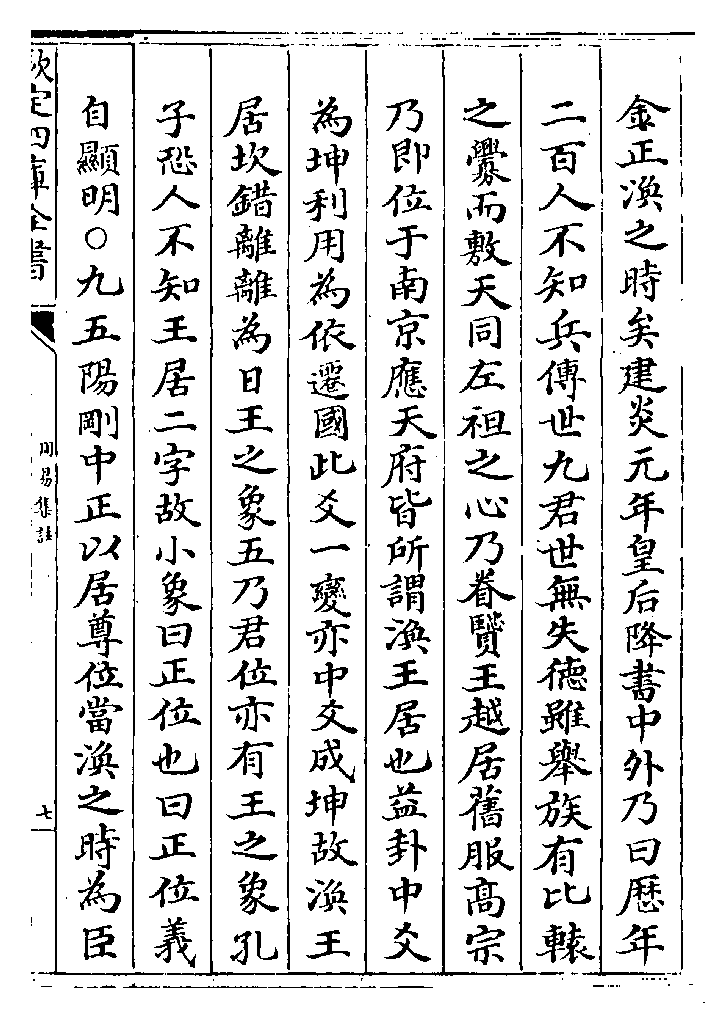 金正渙之時矣建炎元年皇后降書中外乃曰厯年
二百人不知兵傳世九君世無失德雖舉族有比轅
之釁而敷天同左袒之心乃眷賢王越居舊服高宗
乃即位于南京應天府皆所謂渙王居也益卦中爻
為坤利用為依遷國此爻一變亦中爻成坤故渙王
居坎錯離離為日王之象五乃君位亦有王之象孔
子恐人不知王居二字故小象曰正位也曰正位義
自顯明○九五陽剛中正以居尊位當渙之時為臣
欽定四庫全書
周易集註
七